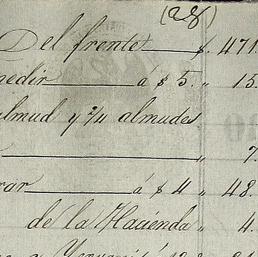 (28)
Del frente $. 471
medir á $ 5. „ 15
almud y 2/4 almudes
„ 7.
á $ 4 „ 48.
de la Hacienda „ 4.